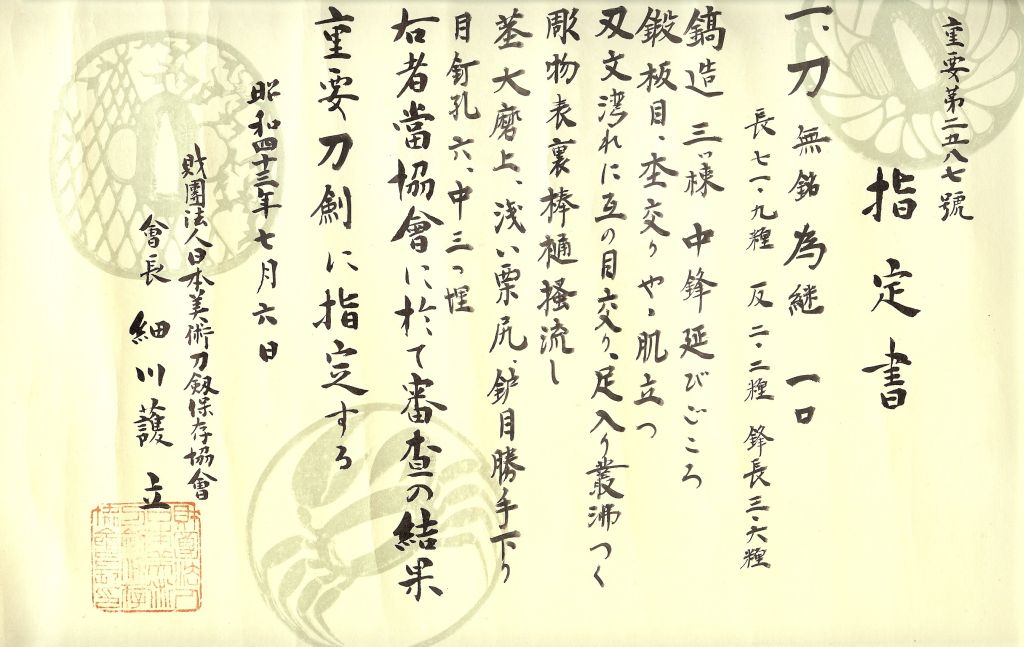 重要第二五八七號
指定書
一、刀 無銘 為継 一口
長 七一・九糎 反 二・二糎 鋒長 三・六糎
鎬造 三ッ棟 中鋒延びごころ
鍛 板目、杢交り やゝ肌立つ
刃文 湾れに互の目交り、足入り 叢沸つく
彫物 表裏 棒樋掻流し
茎 大磨上、浅い栗尻、鈩目勝手下り
目釘孔 六、中三つ埋
右者當協會に於て審査の結果
重要刀剣に指定する
昭和四十三年七月六日
財團法人日本美術刀剱保存協會
會長 細川護立